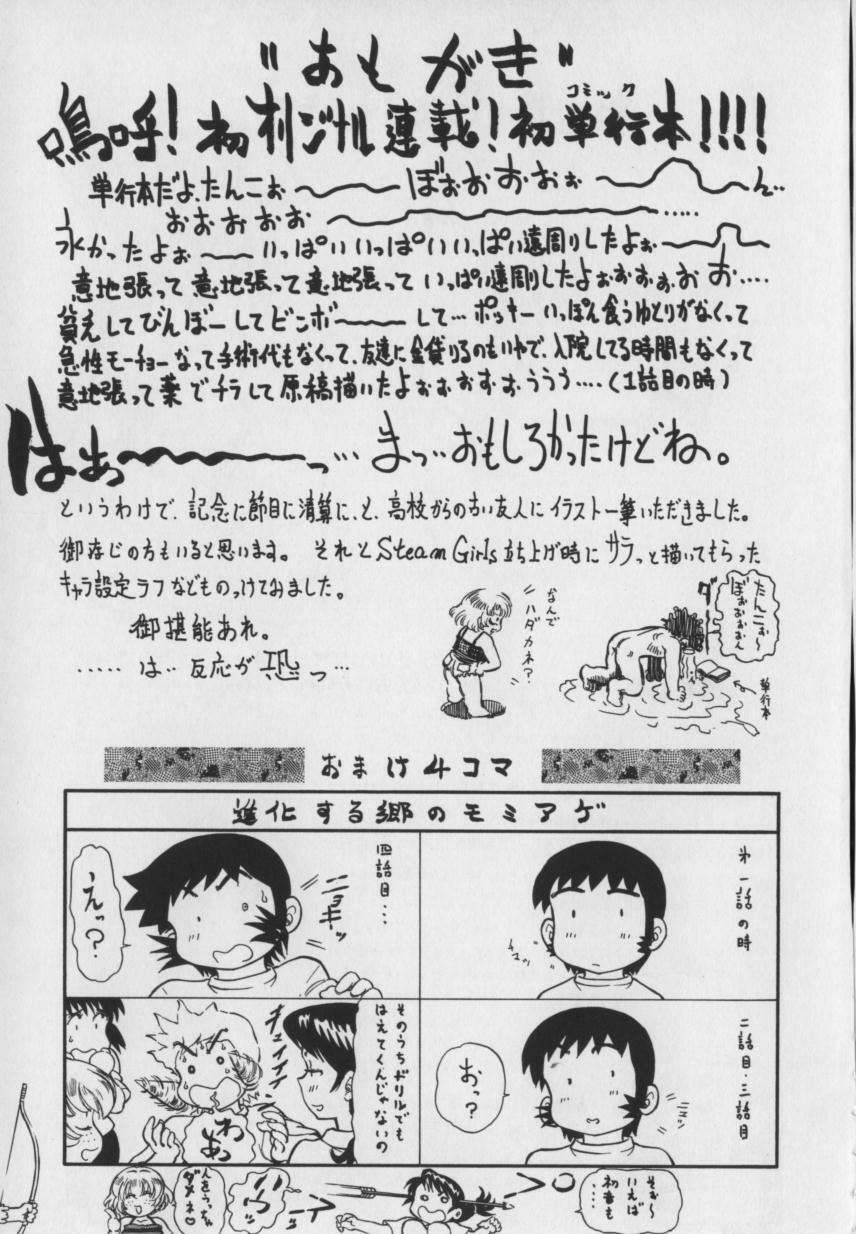 "あもがき"
嗚呼！初オリジナル連載！初単行本!!!!
コミック
単行本だよ、たんこぉ〜〜ぼぉぉおおぉぉ〜〜ん…
おぉぉぉぉぉ〜〜……
永かったよぉ〜〜いっぱいいっぱいいっぱい遠周りしたよぉ〜〜
意地張って意地張って意地張っていっぱい遠周りしたよぉぉぉぉぉお‥‥
貧乏してびんぼーしてビンボ〜〜して…ポッキーいっぽん食うゆとりがなくって
急性モーチョーなって手術代もなくって、友達に金貸りるのもいやで、入院してる時間もなくって
意地張って薬でチラして原稿描いたよぉぉぉぉぉぉううう‥‥(1話目の時)
はあっ〜〜〜っ…まっ…おもしろかったけどね。
というわけで、記念に節目に清算に、と、高校からの古い友人にイラスト一筆いただきました。
御存じの方もいると思います。それとSteam Girls立ち上げ時にサラっと描いてもらった
キャラ設定ラフなどものっけてみました。
御堪能あれ。
……は…反応が恐っ…
なんで
ハダカネ？
たんこぉ〜
ぼぉぉぉぉん
ダー
単行本
おまけ4コマ
進化する郷のモミアゲ
第一話の時
チマッ
二話目・三話目
おっ？
ニョッ
四話目…
ニョキーッ
えっ？
そのうちドリルでも
はえてくんじゃないの
キュイイイイ
わあっ
そお〜
いえば
初音も
…
人をうっちゃ
ダメネ♡